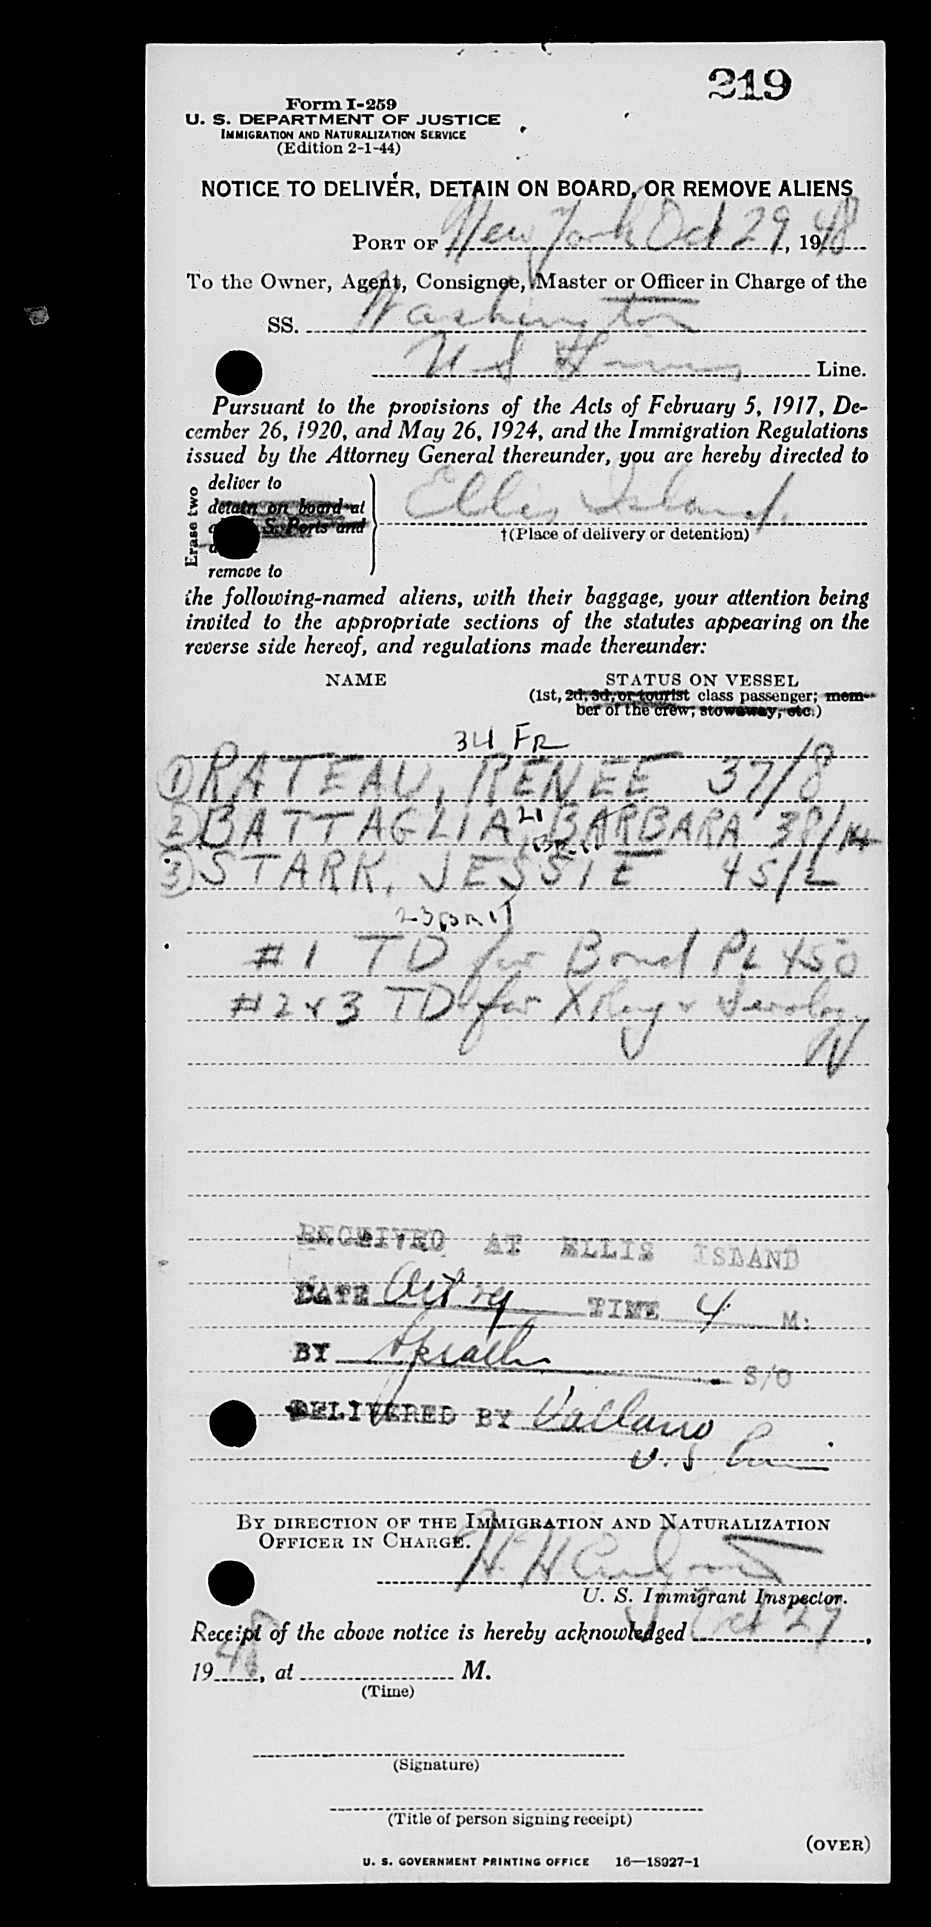 219
Form I-259
U. S. DEPARTMENT OF JUSTICE
IMMIGRATION AND NATURALIZATION SERVICE
(Edition 2-1-44)
NOTICE TO DELIVER, DETAIN ON BOARD, OR REMOVE ALIENS
PORT OF New York Oct 29, 1948
To the Owner, Agent, Consignee, Master or Officer in Charge of the
SS. Washington
U S Lines Line.
Pursuant to the provisions of the Acts of February 5, 1917, De-
cember 26, 1920, and May 26, 1924, and the Immigration Regulations
issued by the Attorney General thereunder, you are hereby directed to
Erase two
deliver to
detain on board at
S. Ports and
remove to
Ellis Island.
†(Place of delivery or detention)
the following-named aliens, with their baggage, your attention being
invited to the appropriate sections of the statutes appearing on the
reverse side hereof, and regulations made thereunder:
NAME STATUS ON VESSEL
(1st, 2d, 3d, or tourist class passenger; mem-
ber of the crew; stowaway, etc.)
34 FR
1 RATEAU, RENEE 37/8
21
2 BATTAGLIA, BARBARA 38/14
BRIT
3 STARK, JESSIE 45/2
23 BRIT
#1 TD for Bond PL 450
#2 & 3 TD for XRay & Serology
RECEIVED AT ELLIS ISLAND
DATE Oct 29 TIME 4 M.
BY S/O
DELIVERED BY
U. S
BY DIRECTION OF THE IMMIGRATION AND NATURALIZATION
OFFICER IN CHARGE.
H. H
U. S. Immigrant Inspector.
Receipt of the above notice is hereby acknowledged Oct 29,
1948, at M.
(Time)
(Signature)
(Title of person signing receipt)
(OVER)
U. S. GOVERNMENT PRINTING OFFICE 16—18927-1